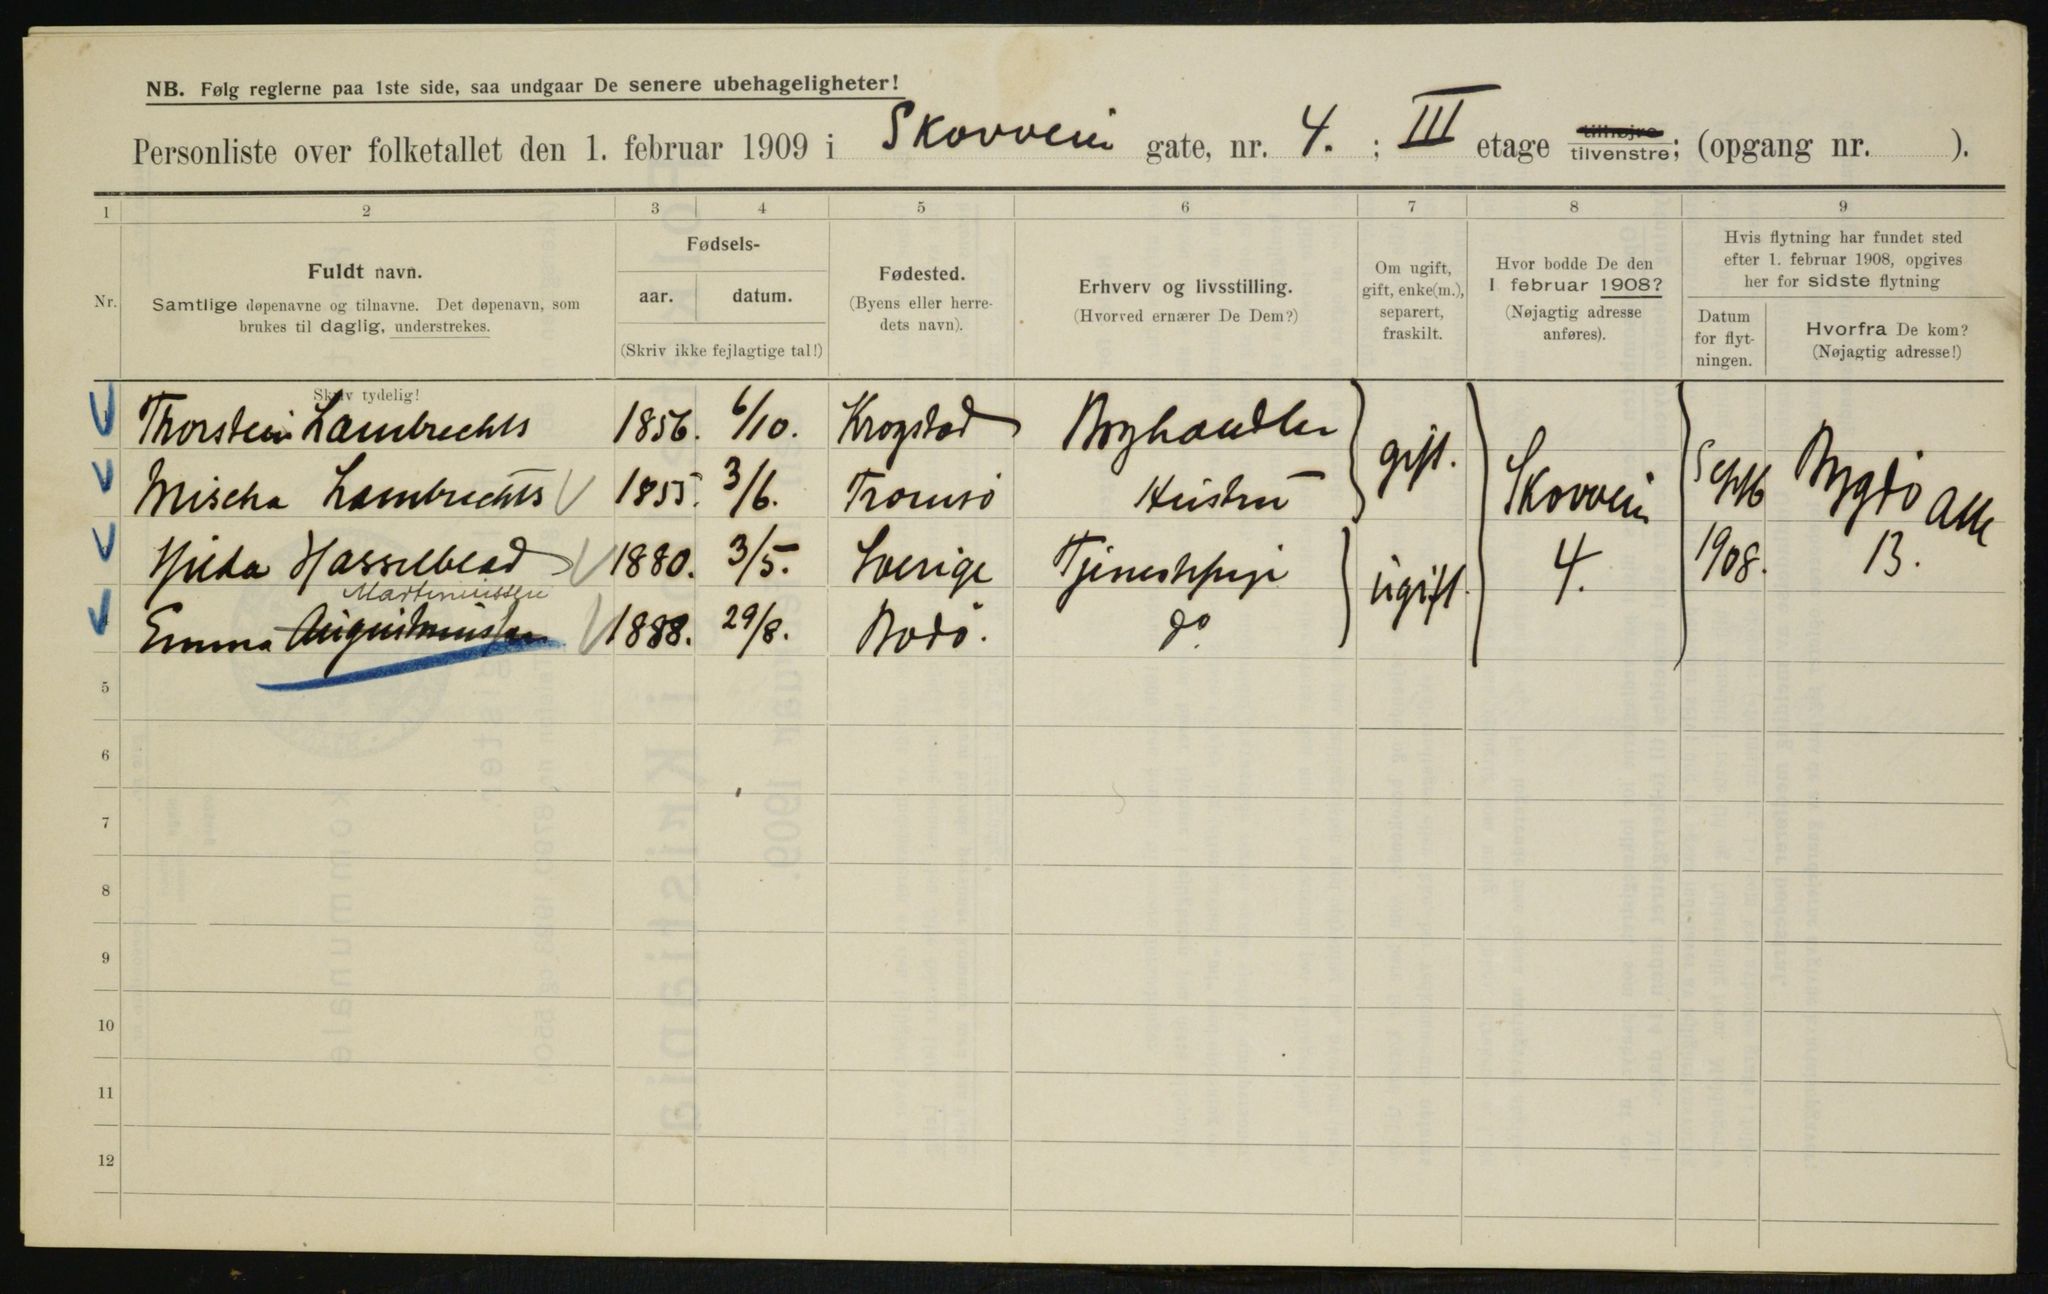 NB. Følg reglerne paa 1ste side, saa undgaar De senere ubehageligheter!
Personliste over folketallet den 1. februar 1909 i Skovvein gate, nr. 4. ; III etage tilhøjre tilvenstre; (opgang nr. ).
1 2 3 4 5 6 7 8 9
Nr.
Fuldt navn.
Samtlige døpenavne og tilnavne. Det døpenavn, som
brukes til daglig, understrekes.
Fødsels-
aar. datum.
(Skriv ikke fejlagtige tal!)
Fødested.
(Byens eller herre-
dets navn).
Erhverv og livsstilling.
(Hvorved ernærer De Dem?)
Om ugift,
gift, enke(m.),
separert,
fraskilt.
Hvor bodde De den
1 februar 1908?
(Nøjagtig adresse
anføres).
Hvis flytning har fundet sted
efter 1. februar 1908, opgives
her for sidste flytning
Datum
for flyt-
ningen.
Hvorfra De kom?
(Nøjagtig adresse!)
Skriv tydelig!
Thorstein Lambrechts 1856. 6/10. Krogstad Boghandler gift.
Mischa Lambrechts 1855. 3/6. Tromsö Hustru Skovvein Septb Bygdö Alle
Hilda Hasselblad 1880. 3/5. Sverige Tjenestepige ugift 4. 1908. 13.
Martiniussen
Emma Augustinussen 1888. 29/8. Bodö. do.
5
6
7
8
9
10
11
12